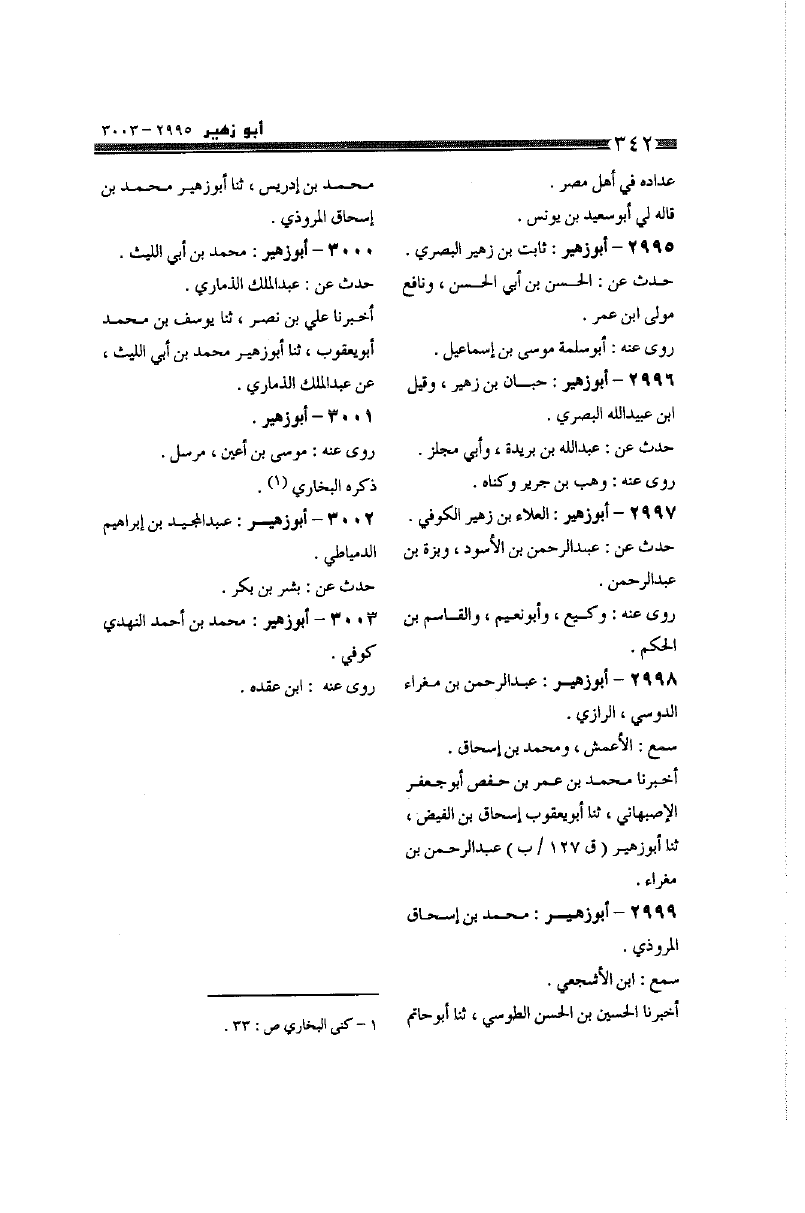 أبو زهير ٢٩٩٥ – ٣٠٠٣
٣٤٢
عداده في أهل مصر .
قاله لي أبوسعيد بن يونس .
٢٩٩٥ – أبوزهير : ثابت بن زهير البصري .
حدث عن : الحسن بن أبي الحسن ، ونافع
مولى ابن عمر .
روى عنه : أبوسلمة موسى بن إسماعيل .
٢٩٩٦ – أبوزهير : حبان بن زهير ، وقيل
ابن عبيدالله البصري .
حدث عن : عبدالله بن بريدة ، وأبي مجلز .
روى عنه : وهب بن جرير وكناه .
٢٩٩٧ – أبوزهير : العلاء بن زهير الكوفي .
حدث عن : عبدالرحمن بن الأسود ، وبزة بن
عبدالرحمن .
روى عنه : وكيع ، وأبونعيم ، والقاسم بن
الحكم .
٢٩٩٨ – أبوزهير : عبدالرحمن بن مغراء
الدوسي ، الرازي .
سمع : الأعمش ، ومحمد بن إسحاق .
أخبرنا محمد بن عمر بن حفص أبوجعفر
الإصبهاني ، ثنا أبويعقوب إسحاق بن الفيض ،
ثنا أبوزهير ( ق ١٢٧ / ب ) عبدالرحمن بن
مغراء .
٢٩٩٩ – أبوزهير : محمد بن إسحاق
المروذي .
سمع : ابن الأشجعي .
أخبرنا الحسين بن الحسن الطوسي ، ثنا أبوحاتم
محمد بن إدريس ، ثنا أبوزهير محمد بن
إسحاق المروذي .
٣٠٠٠ – أبوزهير : محمد بن أبي الليث .
حدث عن : عبدالملك الذماري .
أخبرنا علي بن نصر ، ثنا يوسف بن محمد
أبويعقوب ، ثنا أبوزهير محمد بن أبي الليث ،
عن عبدالملك الذماري .
٣٠٠١ – أبوزهير .
روى عنه : موسى بن أعين ، مرسل .
ذكره البخاري (١) .
٣٠٠٢ – أبوزهير : عبدالمجيد بن إبراهيم
الدمياطي .
حدث عن : بشر بن بكر .
٣٠٠٣ – أبوزهير : محمد بن أحمد النهدي
كوفي .
روى عنه : ابن عقده .
١ – كنى البخاري ص : ٣٣ .